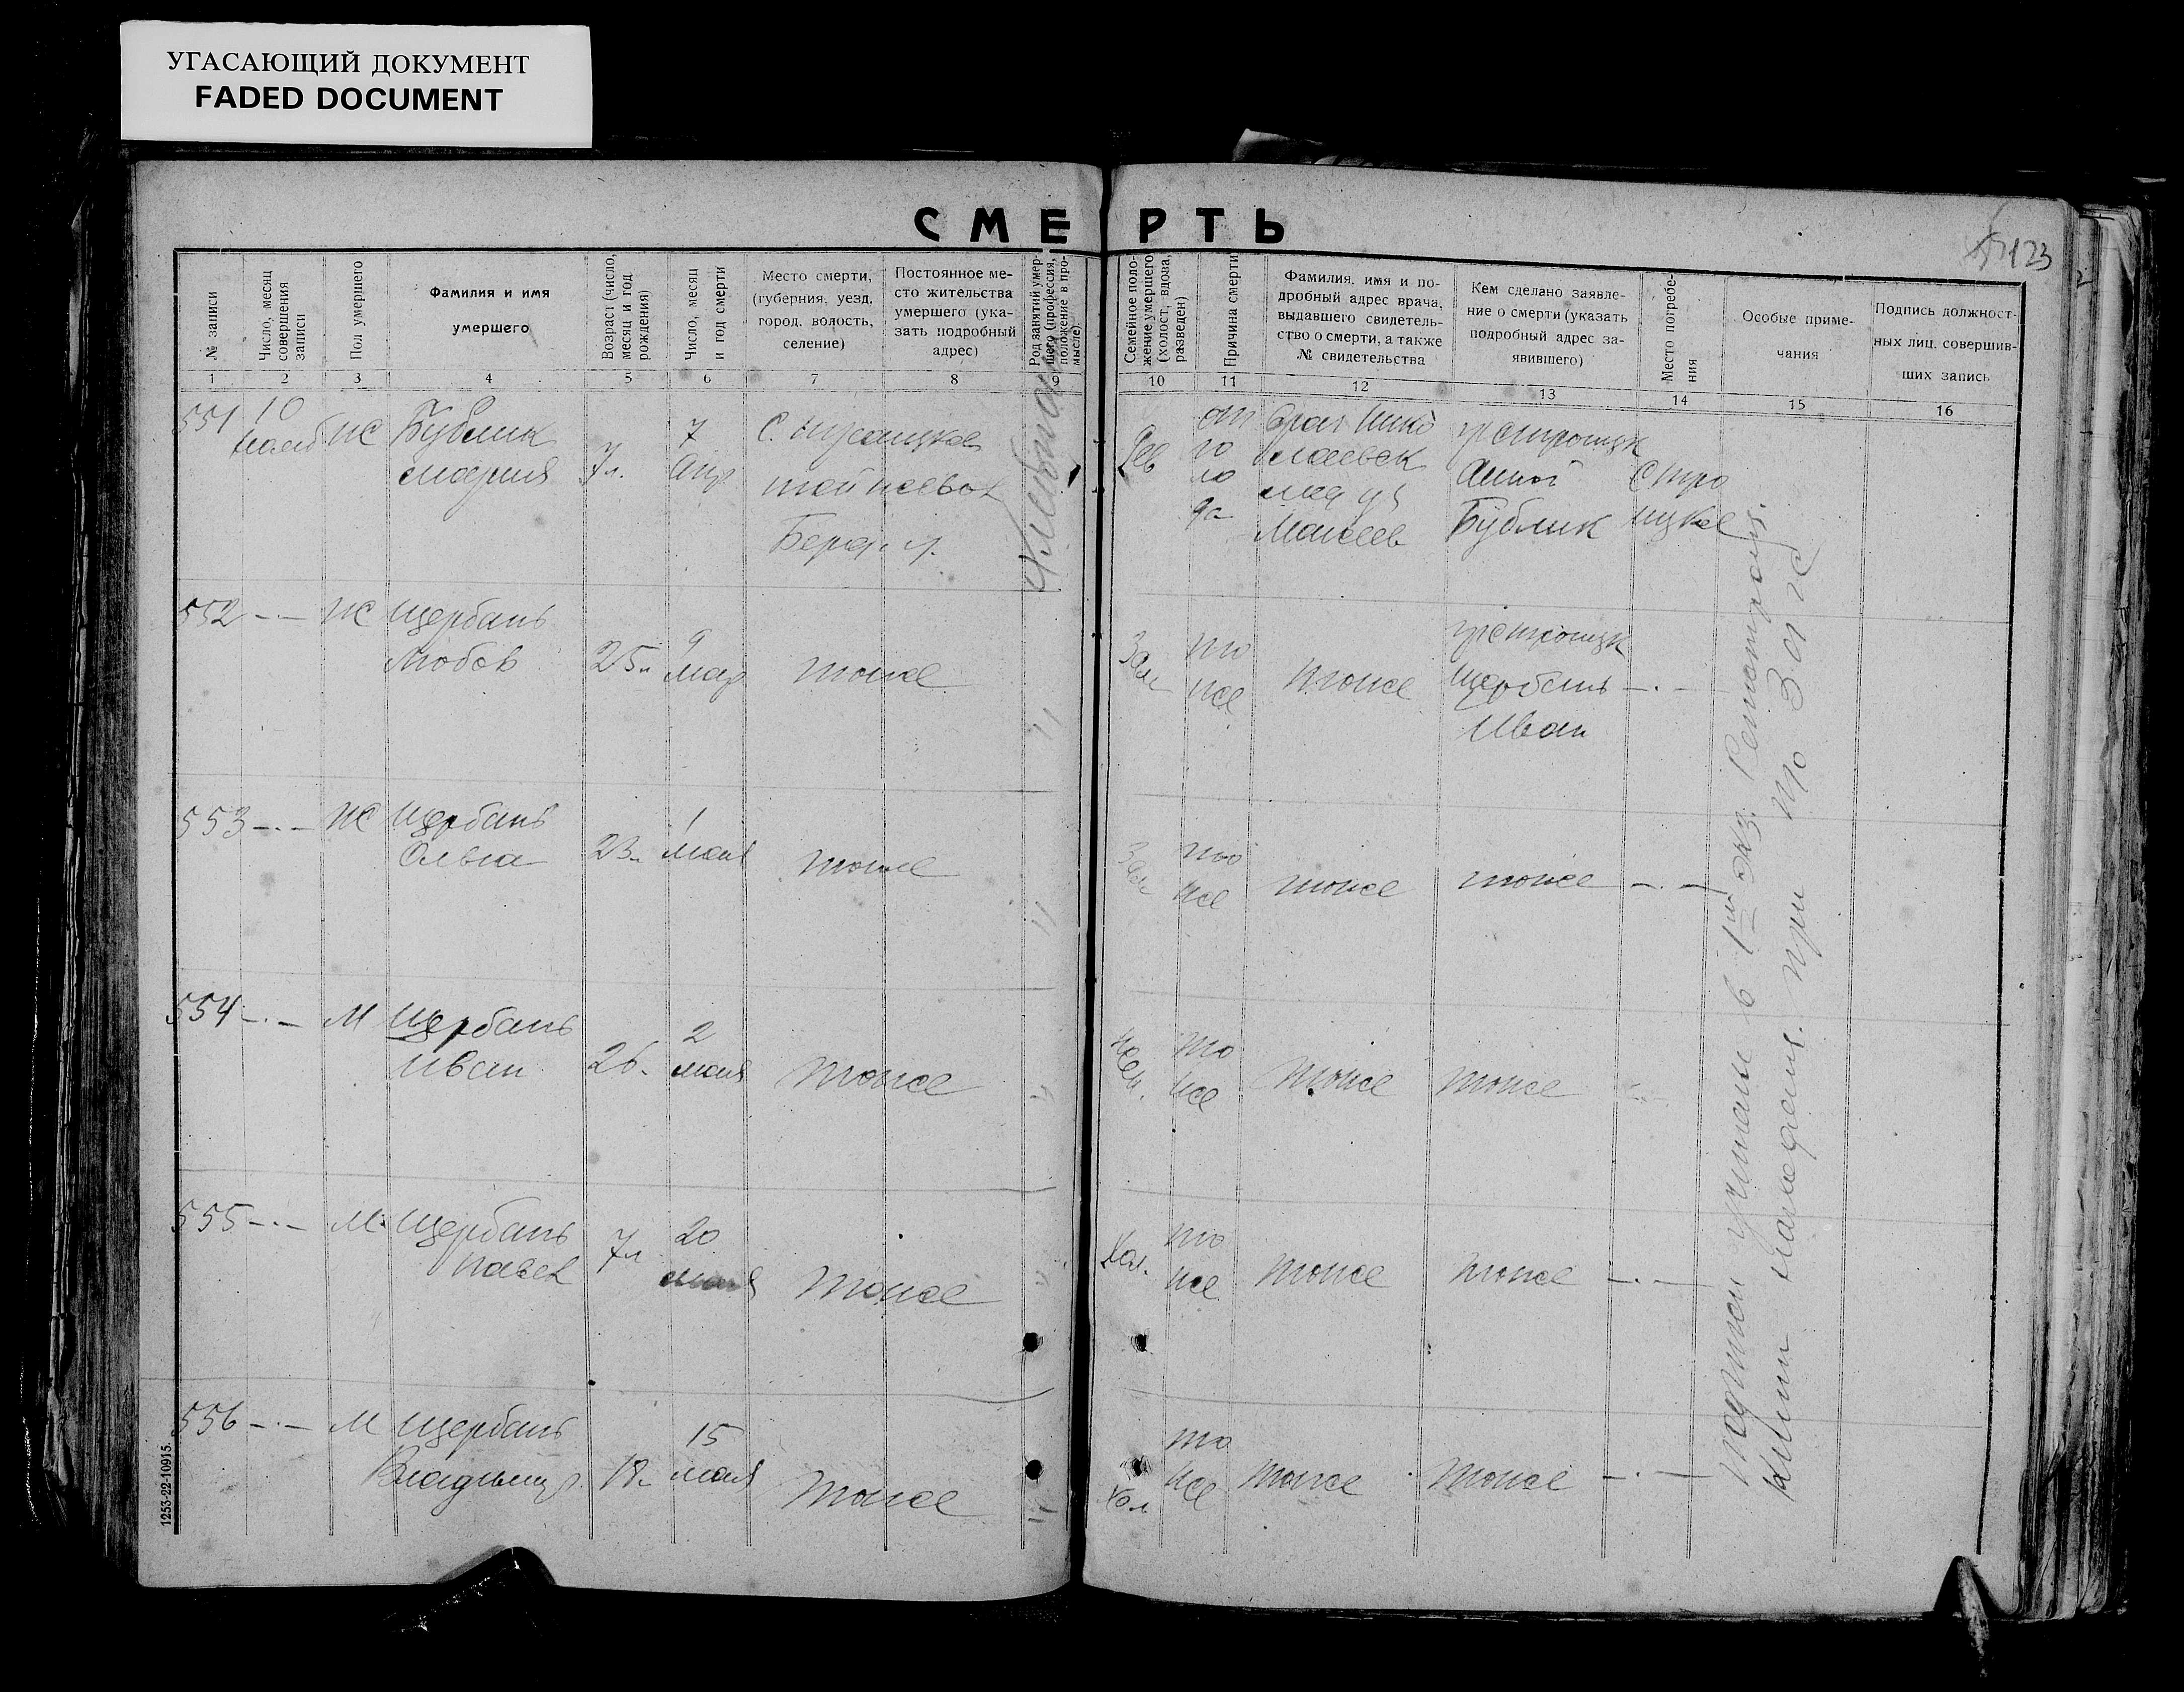 УГАСАЮЩИЙ ДОКУМЕНТ
FADED DOCUMENT
СМЕРТЬ
123
№ записи
Число, месяц
совершения
записи
Пол умершего
Фамилия и имя
умершего
Возраст (число,
месяц и год
рождения)
Число, месяц
и год смерти
Место смерти,
(губерния, уезд,
город, волость,
селение)
Постоянное ме-
сто жительства
умершего (ука-
зать подробный
адрес)
Род занятий умер-
шего (профессия,
положение в про-
мысле)
Семейное поло-
жение умершего
(холост, вдова,
разведен)
Причина смерти
Фамилия, имя и по-
дробный адрес врача,
выдавшего свидетель-
ство о смерти, а также
№ свидетельства
Кем сделано заявле-
ние о смерти (указать
подробный адрес за-
явившего)
Место погребе-
ния
Особые приме-
чания
Подпись должност-
ных лиц, совершив-
ших запись
1 2 3 4 5 6 7 8 9 10 11 12 13 14 15 16
551
10
ж
Бублик
Мария
7л.
7
Апр
с. Троицкое
Берд. у.
от
го
ло
да
врач Нико
лаевск
Моисеев
гр с троицк
Анной
Бублик
с Тро
ицкое
552 -·- ж Щербань
Любов
25л
9
мар
тоже
Зам
то
же
тоже
гр с троицк
Щербань
Иван
-·-
553 -·- ж Щербань
Ольга
23л
1
мая
тоже
Зам
то
же
тоже
тоже
-·-
554 -·- м Щербань
Иван
26.
2
мая
тоже
Жен.
то
же
тоже
тоже
555 -·- м. Щербань
Павел
7л
20
тоже
Хол.
то
же
тоже
тоже
-·-
556 -·- м Щербань
Владимир.
18.
15
мая
тоже
Хол
то
же
тоже
тоже
-·-
Хлебопаш
в 1ый экз. Регистрация.
при
1253-22-10915.